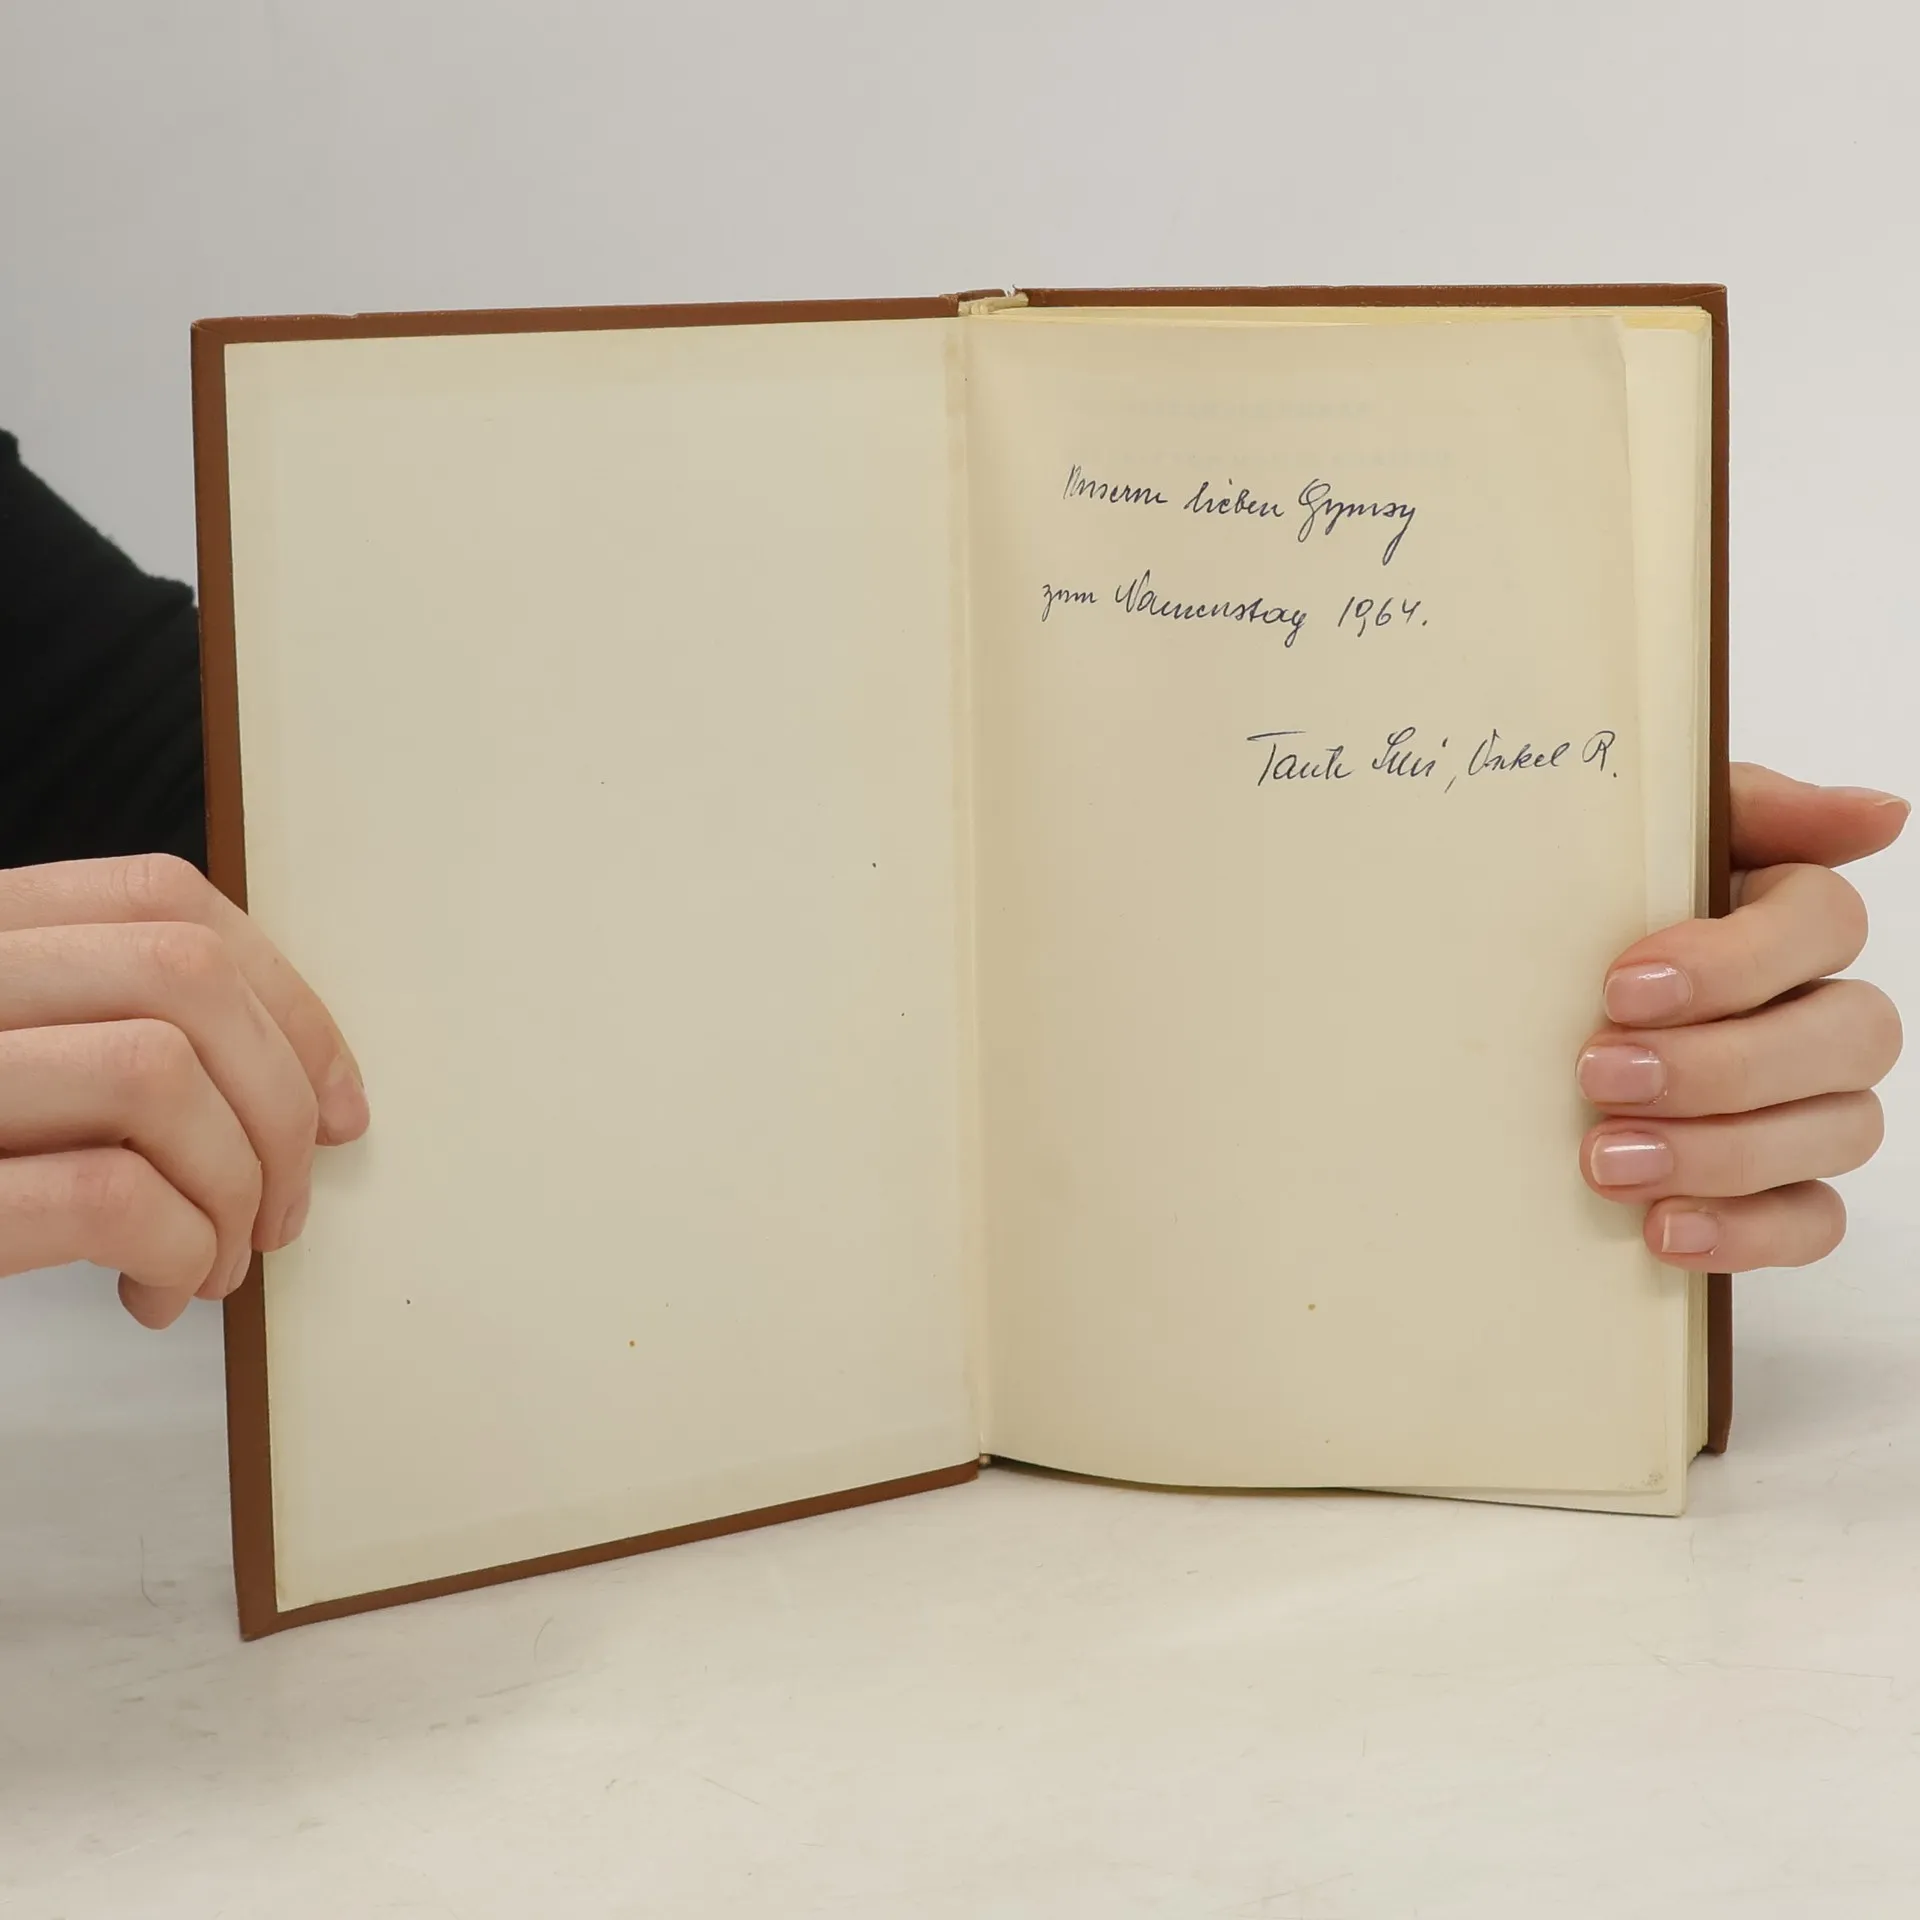 Unserm lieben
zum Namenstag 1964.
Tante Susi, Onkel R.